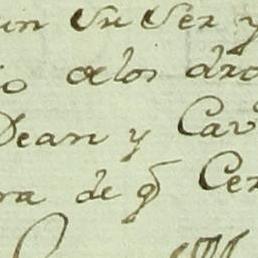 un Su Ser y
io de los dro
Dean y Cav
ra de q Cer